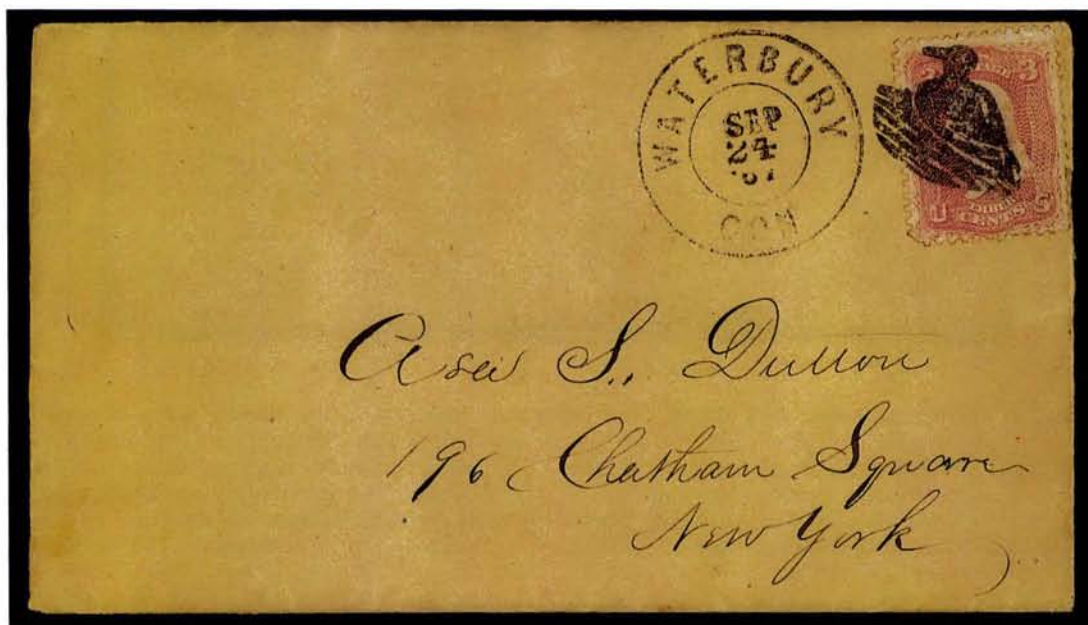 WATERBURY
SEP
24
'67
CON
3
3
CENTS
Asa S. Dutton
196 Chatham Square
New York